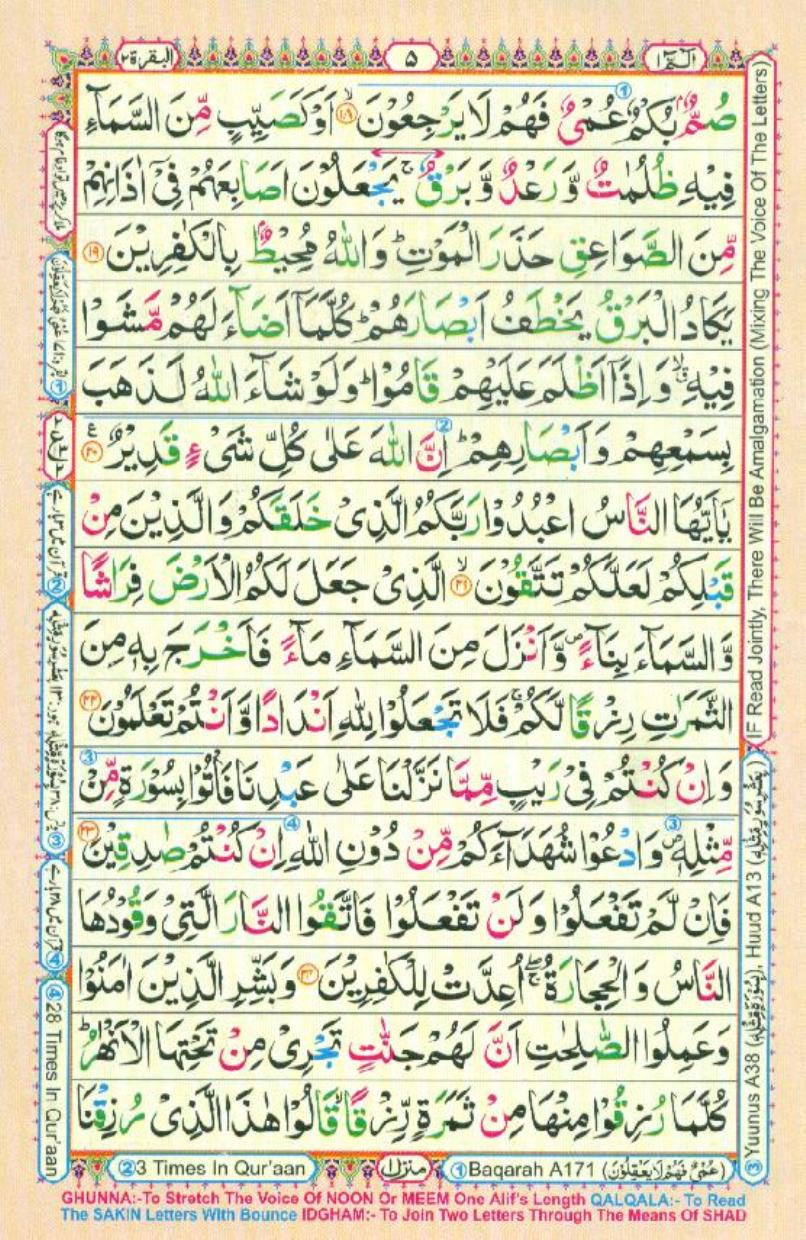 البقرة ٢
٥
الٓمّٓ ١
صُمٌّۢ بُكْمٌ عُمْىٌ فَهُمْ لَا يَرْجِعُوْنَ ۙ﴿۱۸﴾ اَوْ كَصَيِّبٍ مِّنَ السَّمَآءِ
فِيْهِ ظُلُمٰتٌ وَّ رَعْدٌ وَّ بَرْقٌ ۚ يَجْعَلُوْنَ اَصَابِعَهُمْ فِيْٓ اٰذَانِهِمْ
مِّنَ الصَّوَاعِقِ حَذَرَ الْمَوْتِ ؕ وَاللّٰهُ مُحِيْطٌۢ بِالْكٰفِرِيْنَ ﴿۱۹﴾
يَكَادُ الْبَرْقُ يَخْطَفُ اَبْصَارَهُمْ ؕ كُلَّمَآ اَضَآءَ لَهُمْ مَّشَوْا
فِيْهِ ۙۗ وَ اِذَآ اَظْلَمَ عَلَيْهِمْ قَامُوْا ؕ وَلَوْ شَآءَ اللّٰهُ لَذَهَبَ
بِسَمْعِهِمْ وَ اَبْصَارِهِمْ ؕ اِنَّ اللّٰهَ عَلٰى كُلِّ شَىْءٍ قَدِيْرٌ ﴿۲۰﴾ ع
يٰٓاَيُّهَا النَّاسُ اعْبُدُوْا رَبَّكُمُ الَّذِىْ خَلَقَكُمْ وَ الَّذِيْنَ مِنْ
قَبْلِكُمْ لَعَلَّكُمْ تَتَّقُوْنَ ۙ﴿۲۱﴾ الَّذِىْ جَعَلَ لَكُمُ الْاَرْضَ فِرَاشًا
وَّ السَّمَآءَ بِنَآءً ۪ وَّ اَنْزَلَ مِنَ السَّمَآءِ مَآءً فَاَخْرَجَ بِهٖ مِنَ
الثَّمَرٰتِ رِزْقًا لَّكُمْ ۚ فَلَا تَجْعَلُوْا لِلّٰهِ اَنْدَادًا وَّ اَنْتُمْ تَعْلَمُوْنَ ﴿۲۲﴾
وَ اِنْ كُنْتُمْ فِىْ رَيْبٍ مِّمَّا نَزَّلْنَا عَلٰى عَبْدِنَا فَاْتُوْا بِسُوْرَةٍ مِّنْ
مِّثْلِهٖ ۪ وَ ادْعُوْا شُهَدَآءَكُمْ مِّنْ دُوْنِ اللّٰهِ اِنْ كُنْتُمْ صٰدِقِيْنَ ﴿۲۳﴾
فَاِنْ لَّمْ تَفْعَلُوْا وَ لَنْ تَفْعَلُوْا فَاتَّقُوا النَّارَ الَّتِىْ وَقُوْدُهَا
النَّاسُ وَ الْحِجَارَةُ ۖۚ اُعِدَّتْ لِلْكٰفِرِيْنَ ﴿۲۴﴾ وَ بَشِّرِ الَّذِيْنَ اٰمَنُوْا
وَ عَمِلُوا الصّٰلِحٰتِ اَنَّ لَهُمْ جَنّٰتٍ تَجْرِىْ مِنْ تَحْتِهَا الْاَنْهٰرُ ؕ
كُلَّمَا رُزِقُوْا مِنْهَا مِنْ ثَمَرَةٍ رِّزْقًا ۙ قَالُوْا هٰذَا الَّذِىْ رُزِقْنَا
② 3 Times In Qur'aan
منزل ١
① Baqarah A171 (عُمْىٌ فَهُمْ لَا يَعْقِلُوْنَ)
GHUNNA:-To Stretch The Voice Of NOON Or MEEM One Alif's Length QALQALA:- To Read
The SAKIN Letters With Bounce IDGHAM:- To Join Two Letters Through The Means Of SHAD
IF Read Jointly, There Will Be Amalgamation (Mixing The Voice Of The Letters)
③ Yuunus A38 (بِسُوْرَةٍ مِّثْلِهٖ), Huud A13 (بِعَشْرِ سُوَرٍ مِّثْلِهٖ)
④ 28 Times In Qur'aan